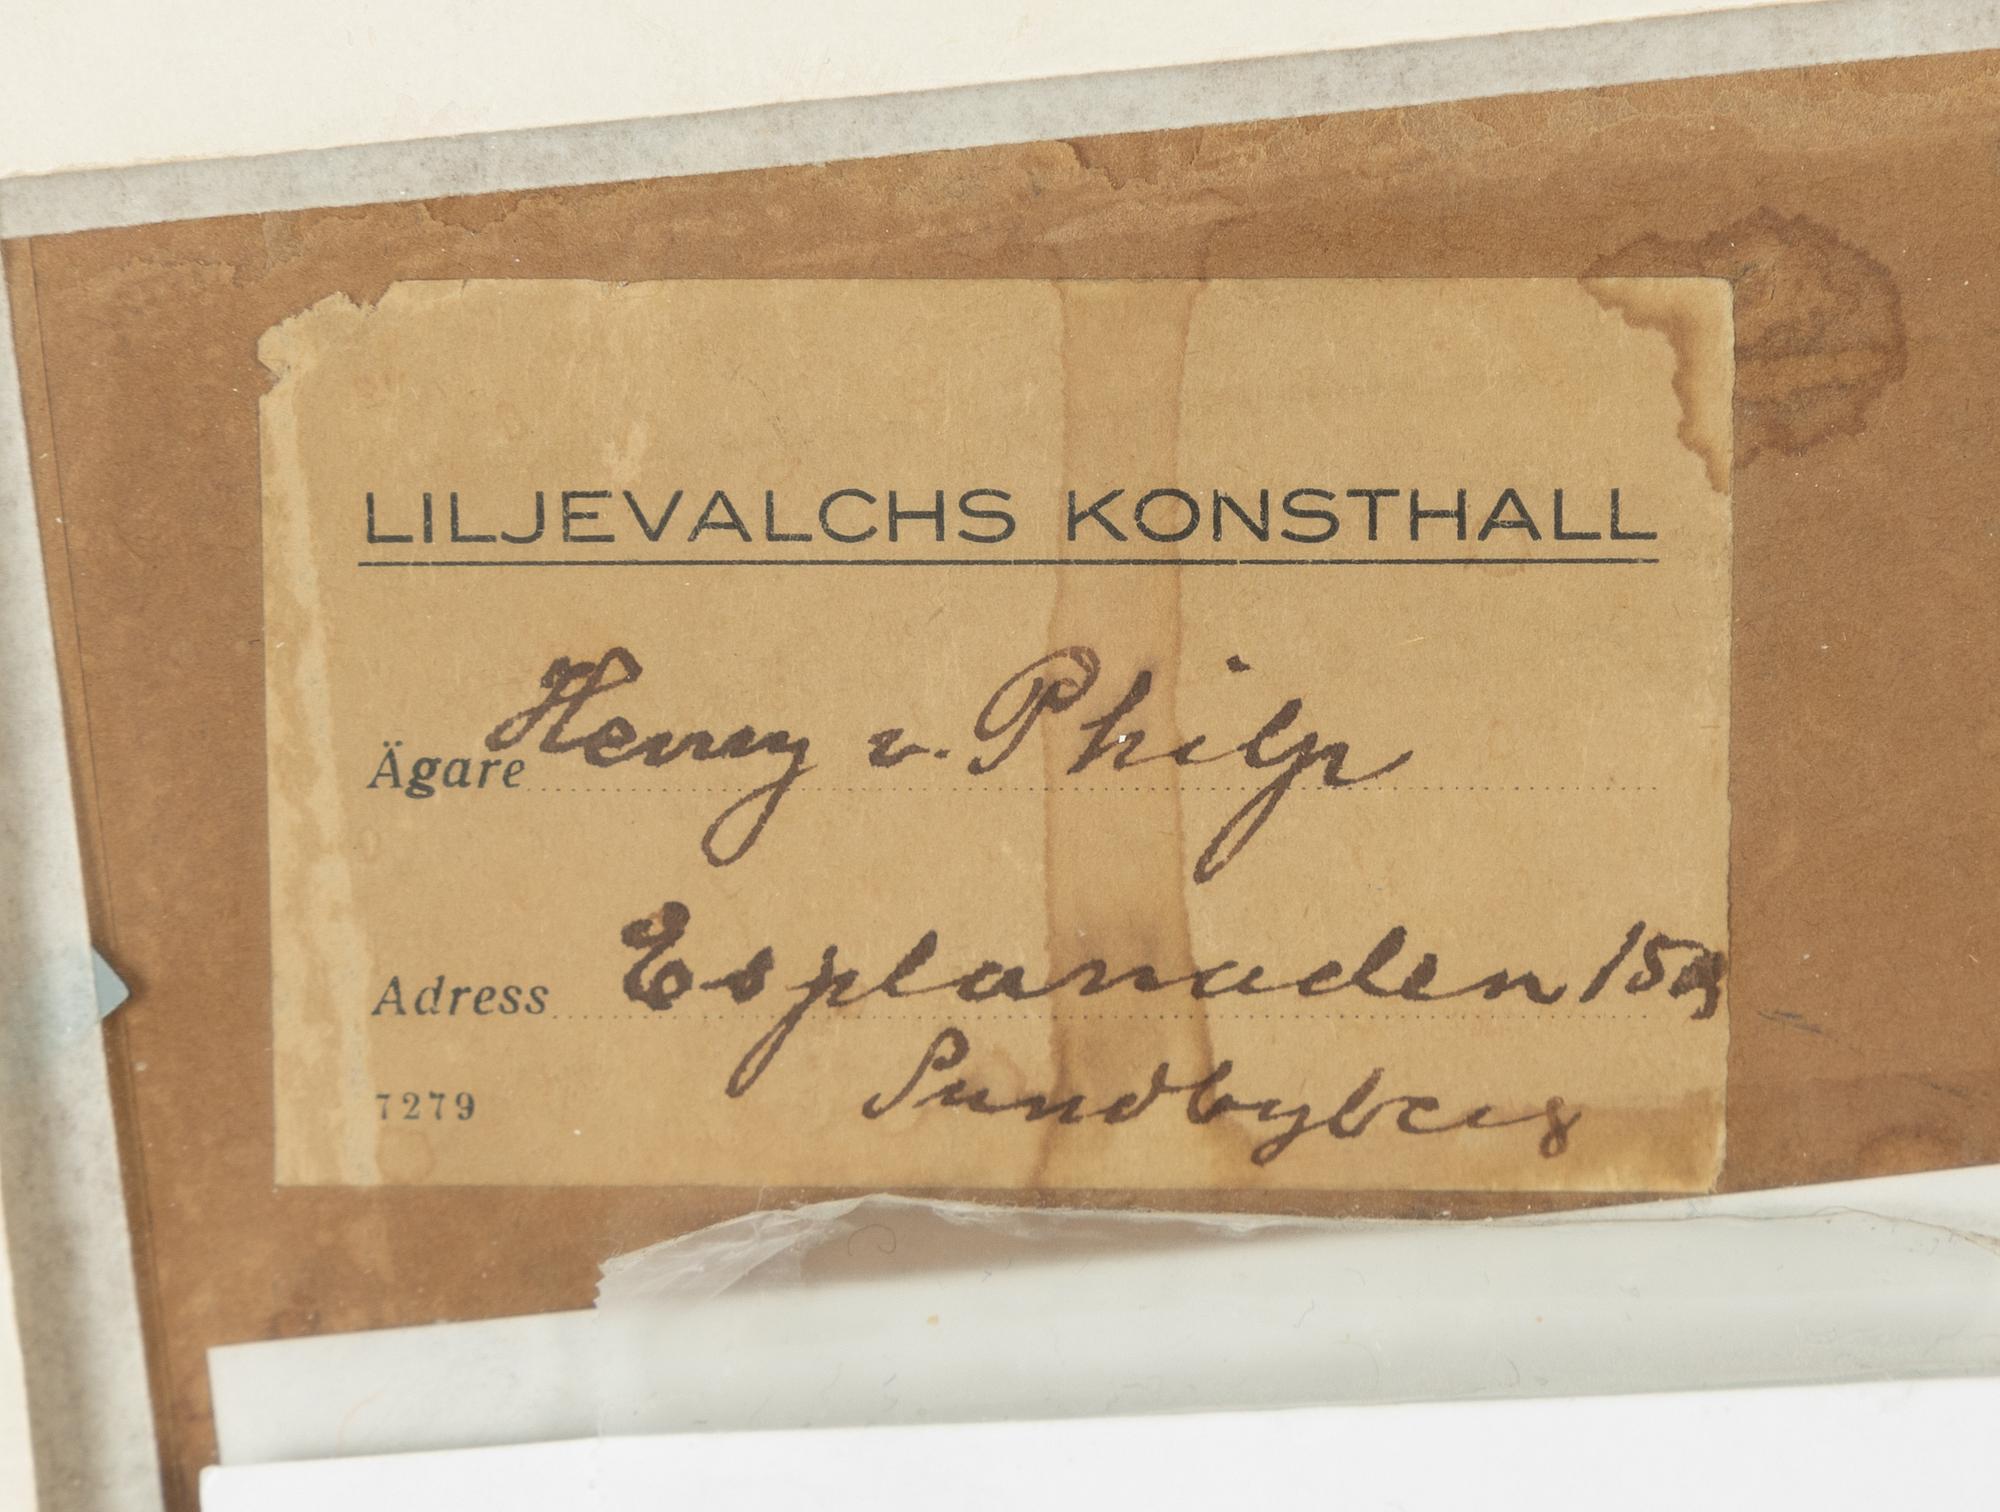 LILJEVALCHS KONSTHALL
Ägare Henry v. Philp
Adress Esplanaden 15a
Sundbyberg
7279